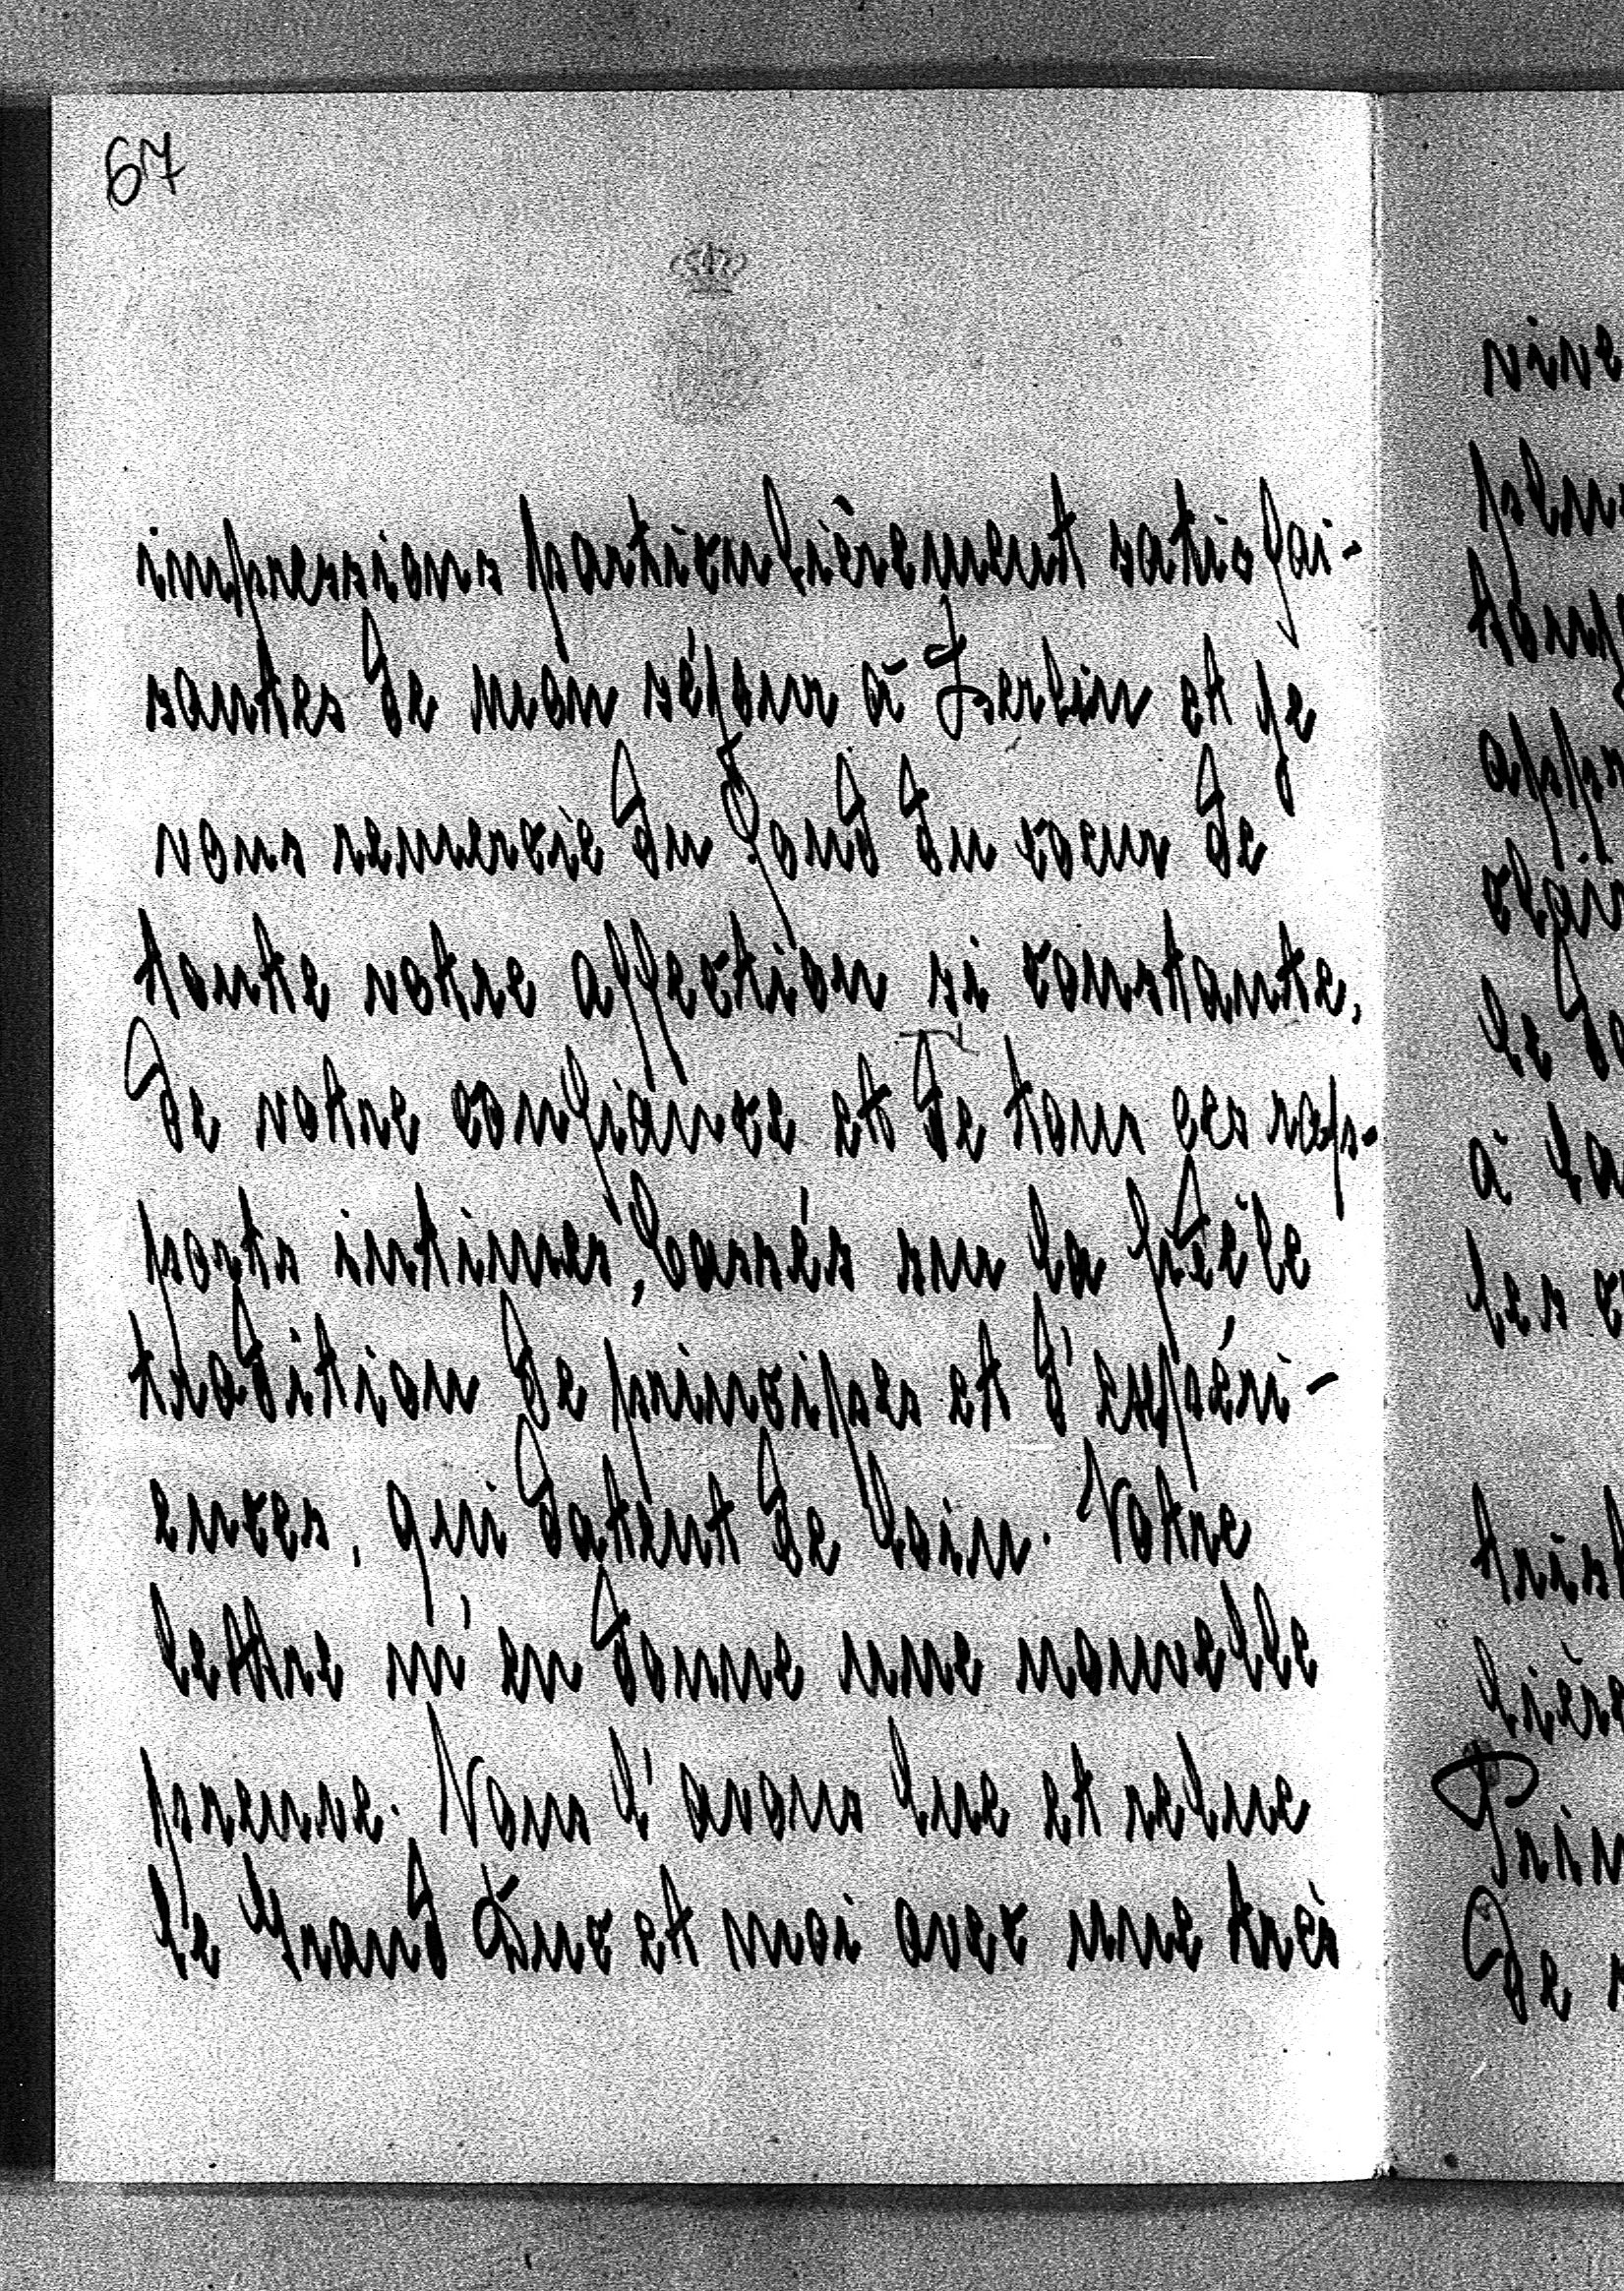 67
impressions particulièrement satisfai-
santes de mon séjour à Berlin et je
vous remercie du fond du coeur de
toute votre affection si constante,
de votre confiance et de tous ces rap-
ports intimes, basés sur la fidèle
tradition de principes et d'expéri-
ences, qui datent de loin. Votre
lettre m'en donne une nouvelle
preuve. Nous l'avons lue et relue
le Grand Duc et moi avec une très